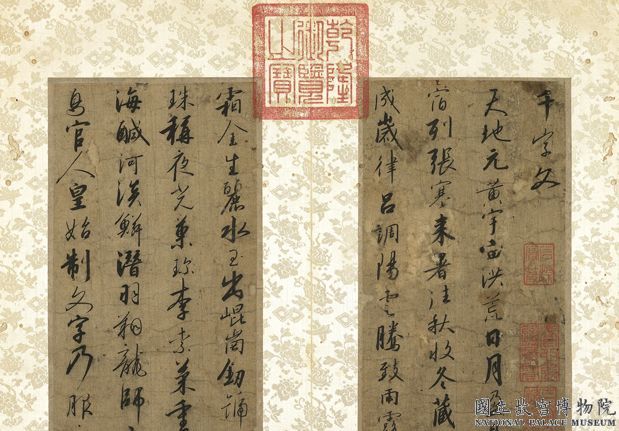 乾隆御覽之寶
千字文
天地元黃宇宙洪荒日月
宿列張寒来暑往秋收冬藏
成歲律呂調陽云騰致雨露
霜金生麗水玉出崐崗釰
珠稱夜光菓珍李柰菜重
海鹹河淡鱗潛羽翔龍師
鳥官人皇始制文字乃服
國立故宮博物院
NATIONAL PALACE MUSEUM